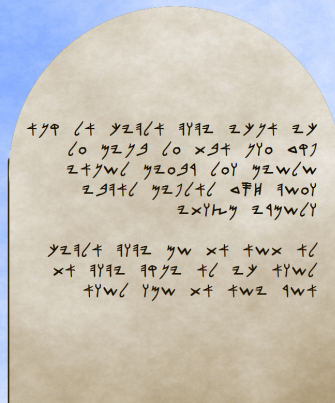 𐤊𐤉 𐤀𐤍𐤊𐤉 𐤉𐤄𐤅𐤄 𐤀𐤋𐤄𐤉𐤊 𐤀𐤋 𐤒𐤍𐤀
𐤐𐤒𐤃 𐤏𐤅𐤍 𐤀𐤁𐤕 𐤏𐤋 𐤁𐤍𐤉𐤌 𐤏𐤋
𐤔𐤋𐤔𐤉𐤌 𐤅𐤏𐤋 𐤓𐤁𐤏𐤉𐤌 𐤋𐤔𐤍𐤀𐤉
𐤅𐤏𐤔𐤄 𐤇𐤎𐤃 𐤋𐤀𐤋𐤐𐤉𐤌 𐤋𐤀𐤄𐤁𐤉
𐤅𐤋𐤔𐤌𐤓𐤉 𐤌𐤑𐤅𐤕𐤉
𐤋𐤀 𐤕𐤔𐤀 𐤀𐤕 𐤔𐤌 𐤉𐤄𐤅𐤄 𐤀𐤋𐤄𐤉𐤊
𐤋𐤔𐤅𐤀 𐤊𐤉 𐤋𐤀 𐤉𐤍𐤒𐤄 𐤉𐤄𐤅𐤄 𐤀𐤕
𐤀𐤔𐤓 𐤉𐤔𐤀 𐤀𐤕 𐤔𐤌𐤅 𐤋𐤔𐤅𐤀